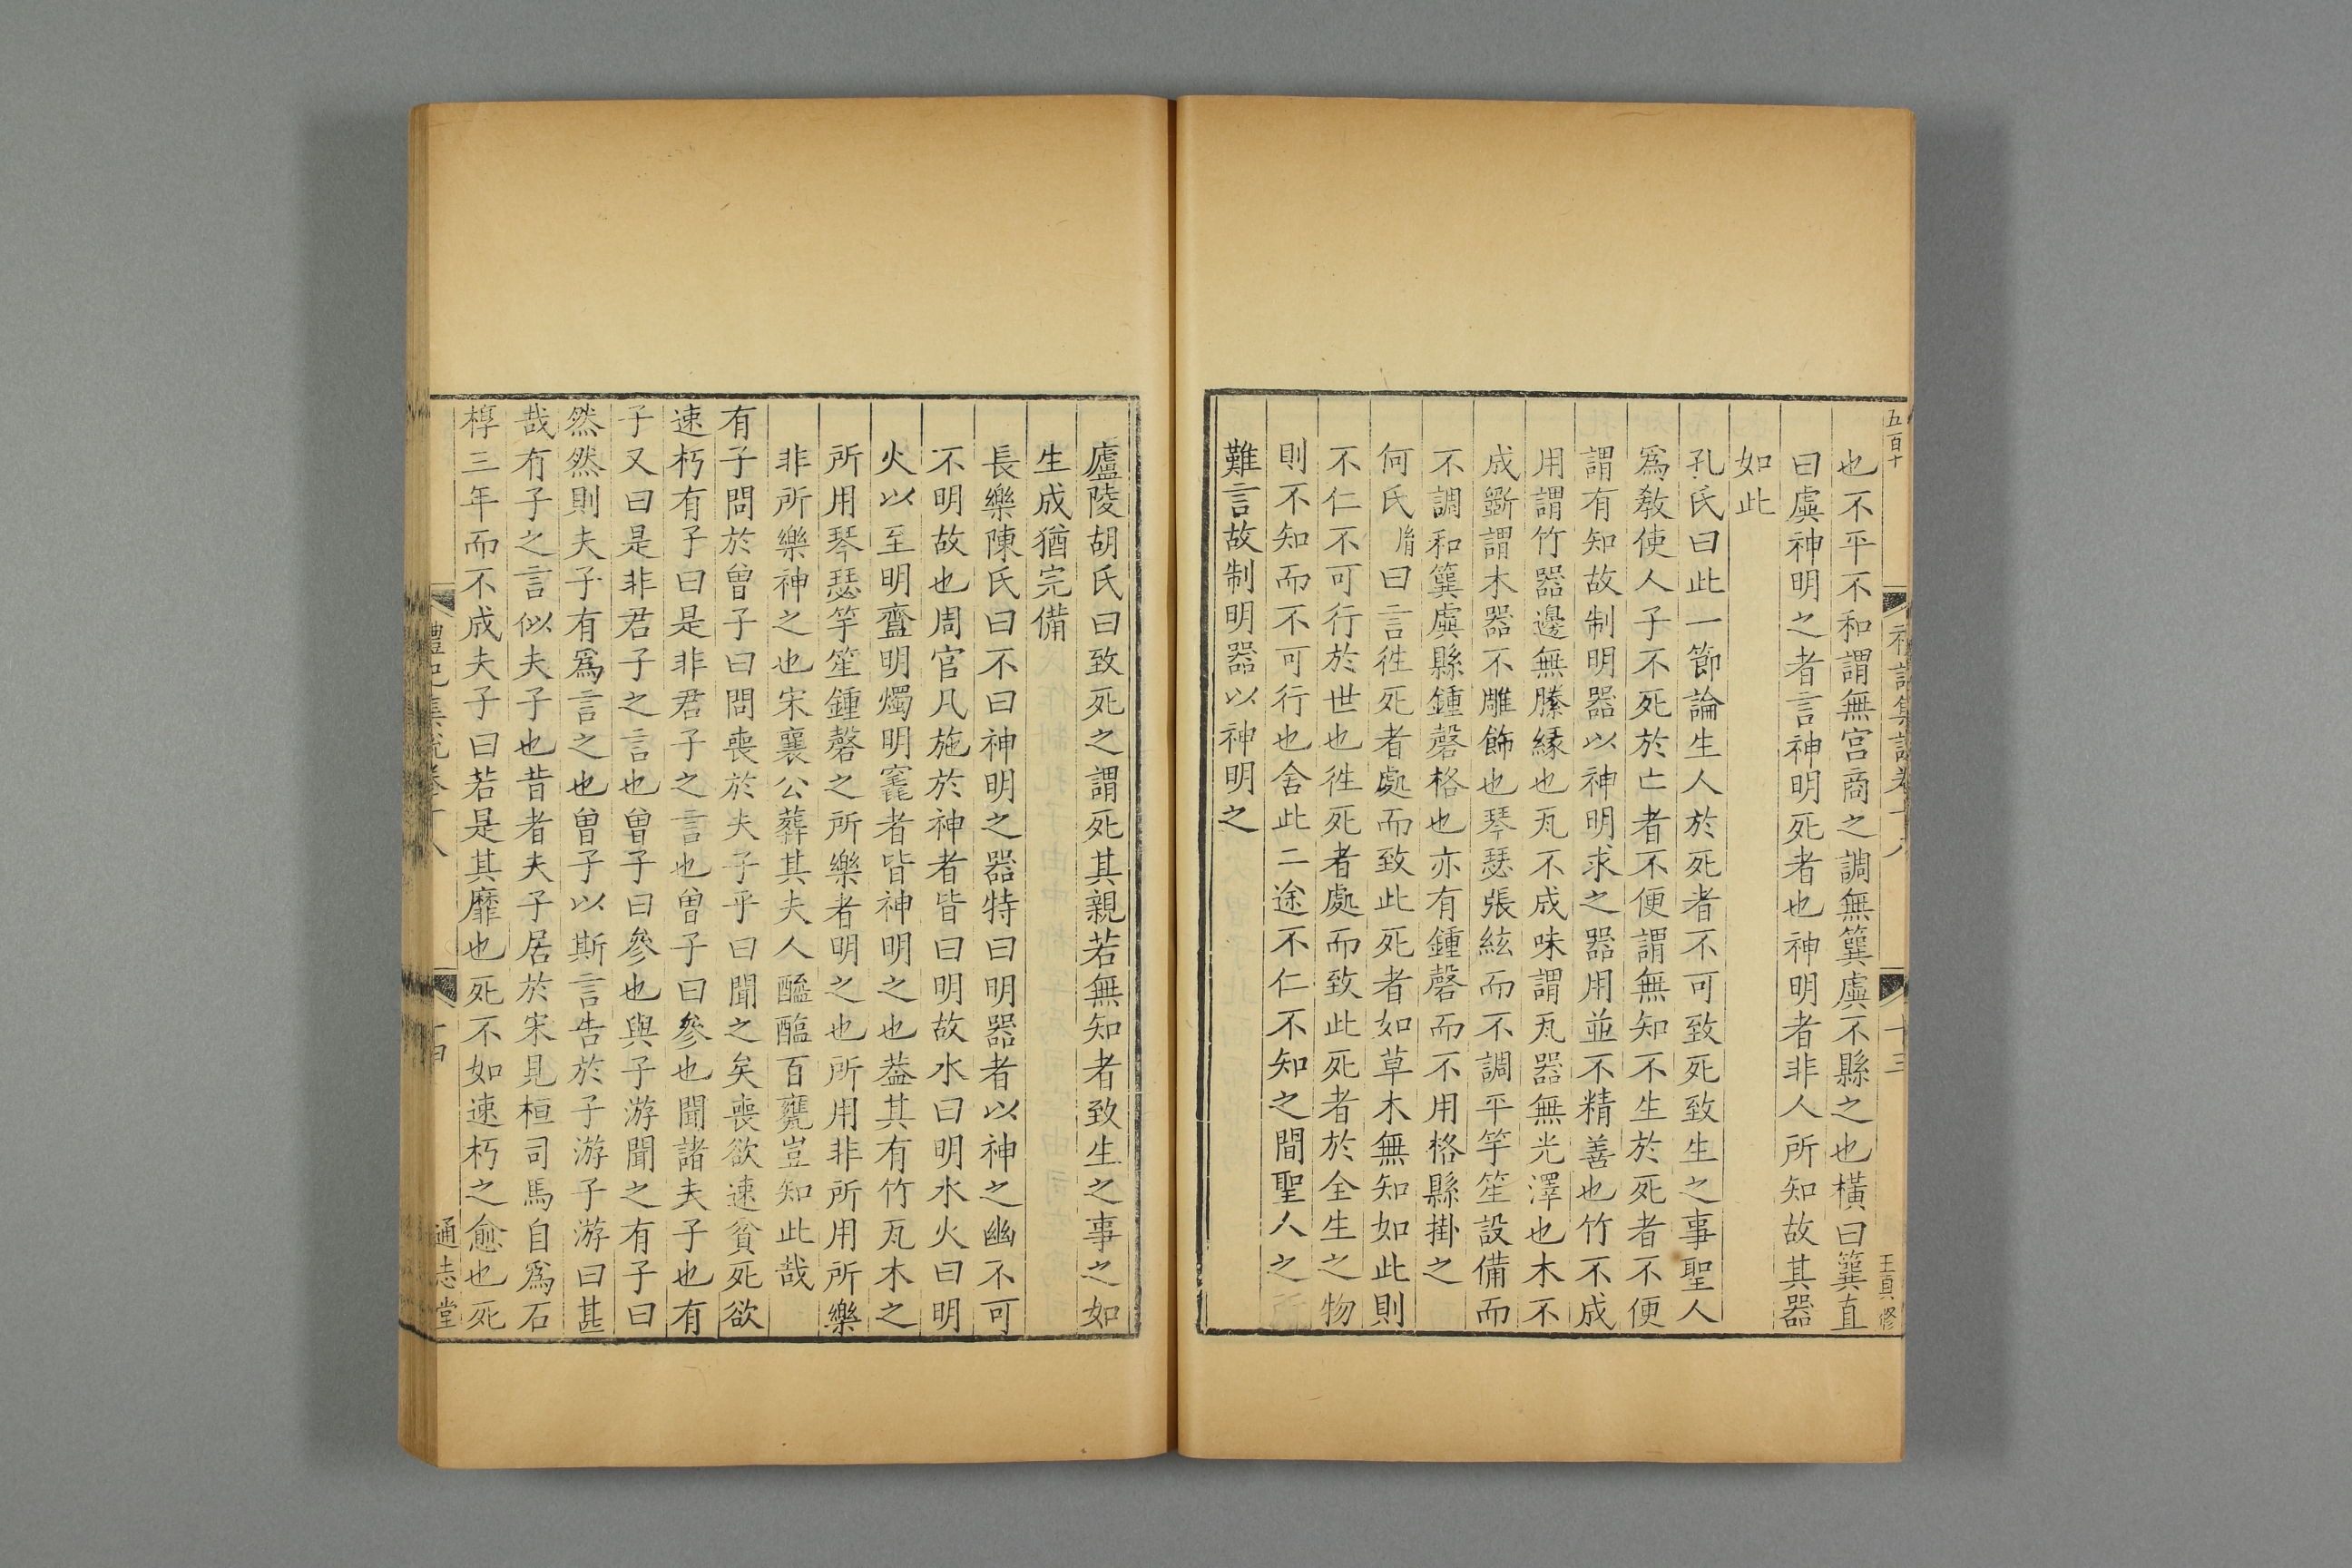 五百十
十三
王真修
也不平不和謂無宫商之調無簨虡不縣之也橫曰簨直
曰虡神明之者言神明死者也神明者非人所知故其器
如此
孔氏曰此一節論生人於死者不可致死致生之事聖人
爲敎使人子不死於亡者不便謂無知不生於死者不便
謂有知故制明器以神明求之器用並不精善也竹不成
用謂竹器邊無縢緣也瓦不成味謂瓦器無光澤也木不
成斵謂木器不雕飾也琴瑟張絃而不調平竽笙設備而
不調和簨虡縣鍾磬格也亦有鍾磬而不用格縣掛之
何氏胤曰言徃死者處而致此死者如草木無知如此則
不仁不可行於世也徃死者處而致此死者於全生之物
則不知而不可行也舍此二途不仁不知之間聖人之所
難言故制明器以神明之
廬陵胡氏曰致死之謂死其親若無知者致生之事之如
生成猶完備
長樂陳氏曰不曰神明之器特曰明器者以神之幽不可
不明故也周官凡施於神者皆曰明故水曰明水火曰明
火以至明齍明燭明竁者皆神明之也葢其有竹瓦木之
所用琴瑟竽笙鍾磬之所樂者明之也所用非所用所樂
非所樂神之也宋襄公葬其夫人醯醢百甕豈知此哉
有子問於曾子曰問喪於夫子乎曰聞之矣喪欲速貧死欲
速朽有子曰是非君子之言也曾子曰參也聞諸夫子也有
子又曰是非君子之言也曾子曰參也與子游聞之有子曰
然然則夫子有爲言之也曾子以斯言告於子游子游曰甚
哉有子之言似夫子也昔者夫子居於宋見桓司馬自爲石
椁三年而不成夫子曰若是其靡也死不如速朽之愈也死
禮記集說卷十八
十四
通志堂